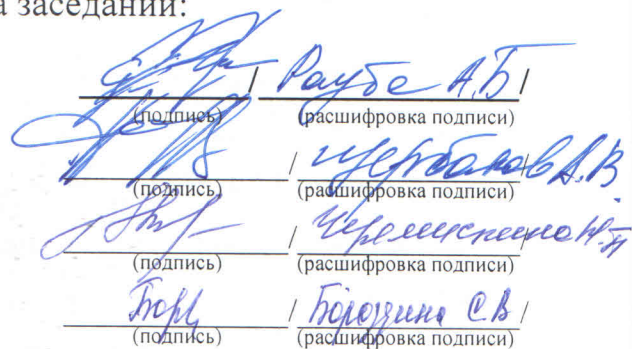 заседании:
/ Раубе А.Б /
(подпись) (расшифровка подписи)
/ Щербаков А.В /
(подпись) (расшифровка подписи)
/ Черемискина /
(подпись) (расшифровка подписи)
/ Бороздина С.В /
(подпись) (расшифровка подписи)